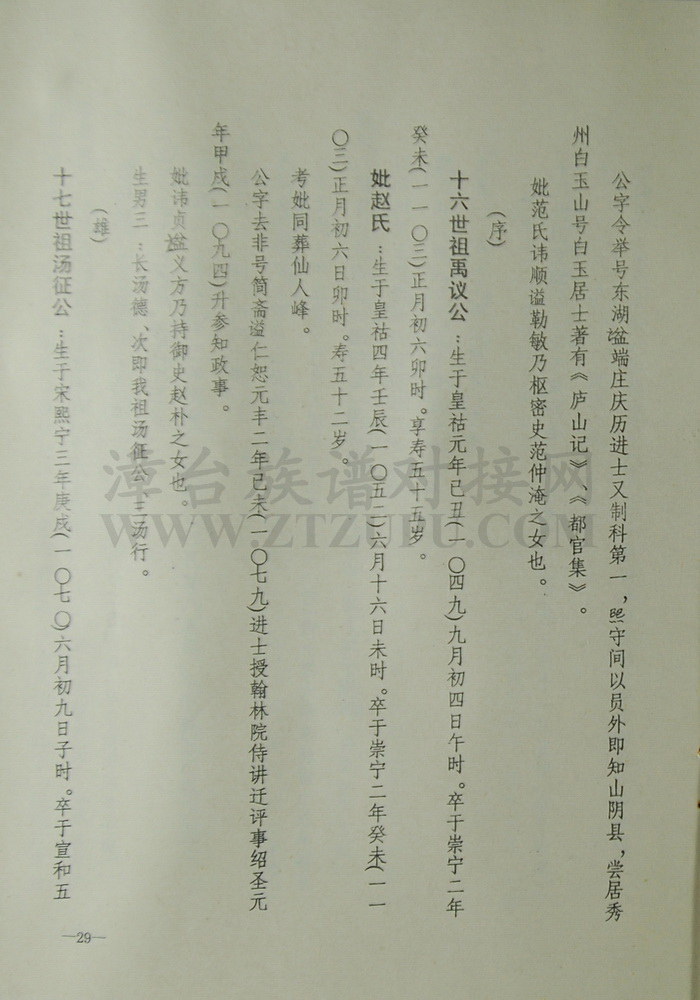 公字令举号东湖谥端庄庆历进士又制科第一，熙守间以员外即知山阴县，尝居秀
州白玉山号白玉居士著有《庐山记》、《都官集》。
妣范氏讳顺谥勒敏乃枢密史范仲淹之女也。
(序)
十六世祖禹议公：生于皇祜元年已丑(一〇四九)九月初四日午时。卒于崇宁二年
癸未(一一〇三)正月初六卯时。享寿五十五岁。
妣赵氏：生于皇祜四年壬辰(一〇五二)六月十六日未时。卒于崇宁二年癸未(一一
〇三)正月初六日卯时。寿五十二岁。
考妣同葬仙人峰。
公字去非号简斋谥仁恕元丰二年已未(一〇七九)进士授翰林院侍讲迁评事绍圣元
年甲戍(一〇九四)升参知政事。
妣讳贞谥义方乃持御史赵朴之女也。
生男三：长汤德、次即我祖汤征公、三汤行。
(雄)
十七世祖汤征公：生于宋熙宁三年庚戍(一〇七〇)六月初九日子时。卒于宣和五
—29—
漳台族谱对接网
WWW.ZTZUPU.COM